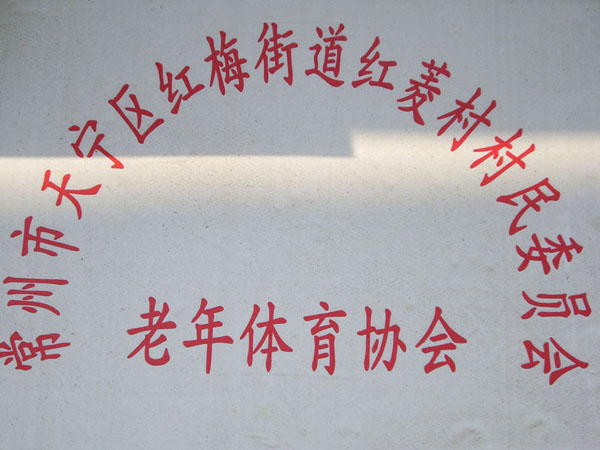 常州市天宁区红梅街道红菱村村民委员会
老年体育协会